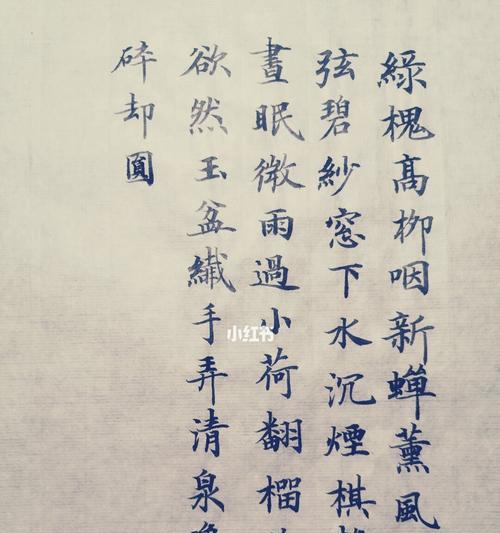 綠槐高柳咽新蟬薰風
弦碧紗窓下水沉煙棋
晝眠微雨過小荷翻榴
欲然玉盆纖手弄清泉
碎却圓
小红书